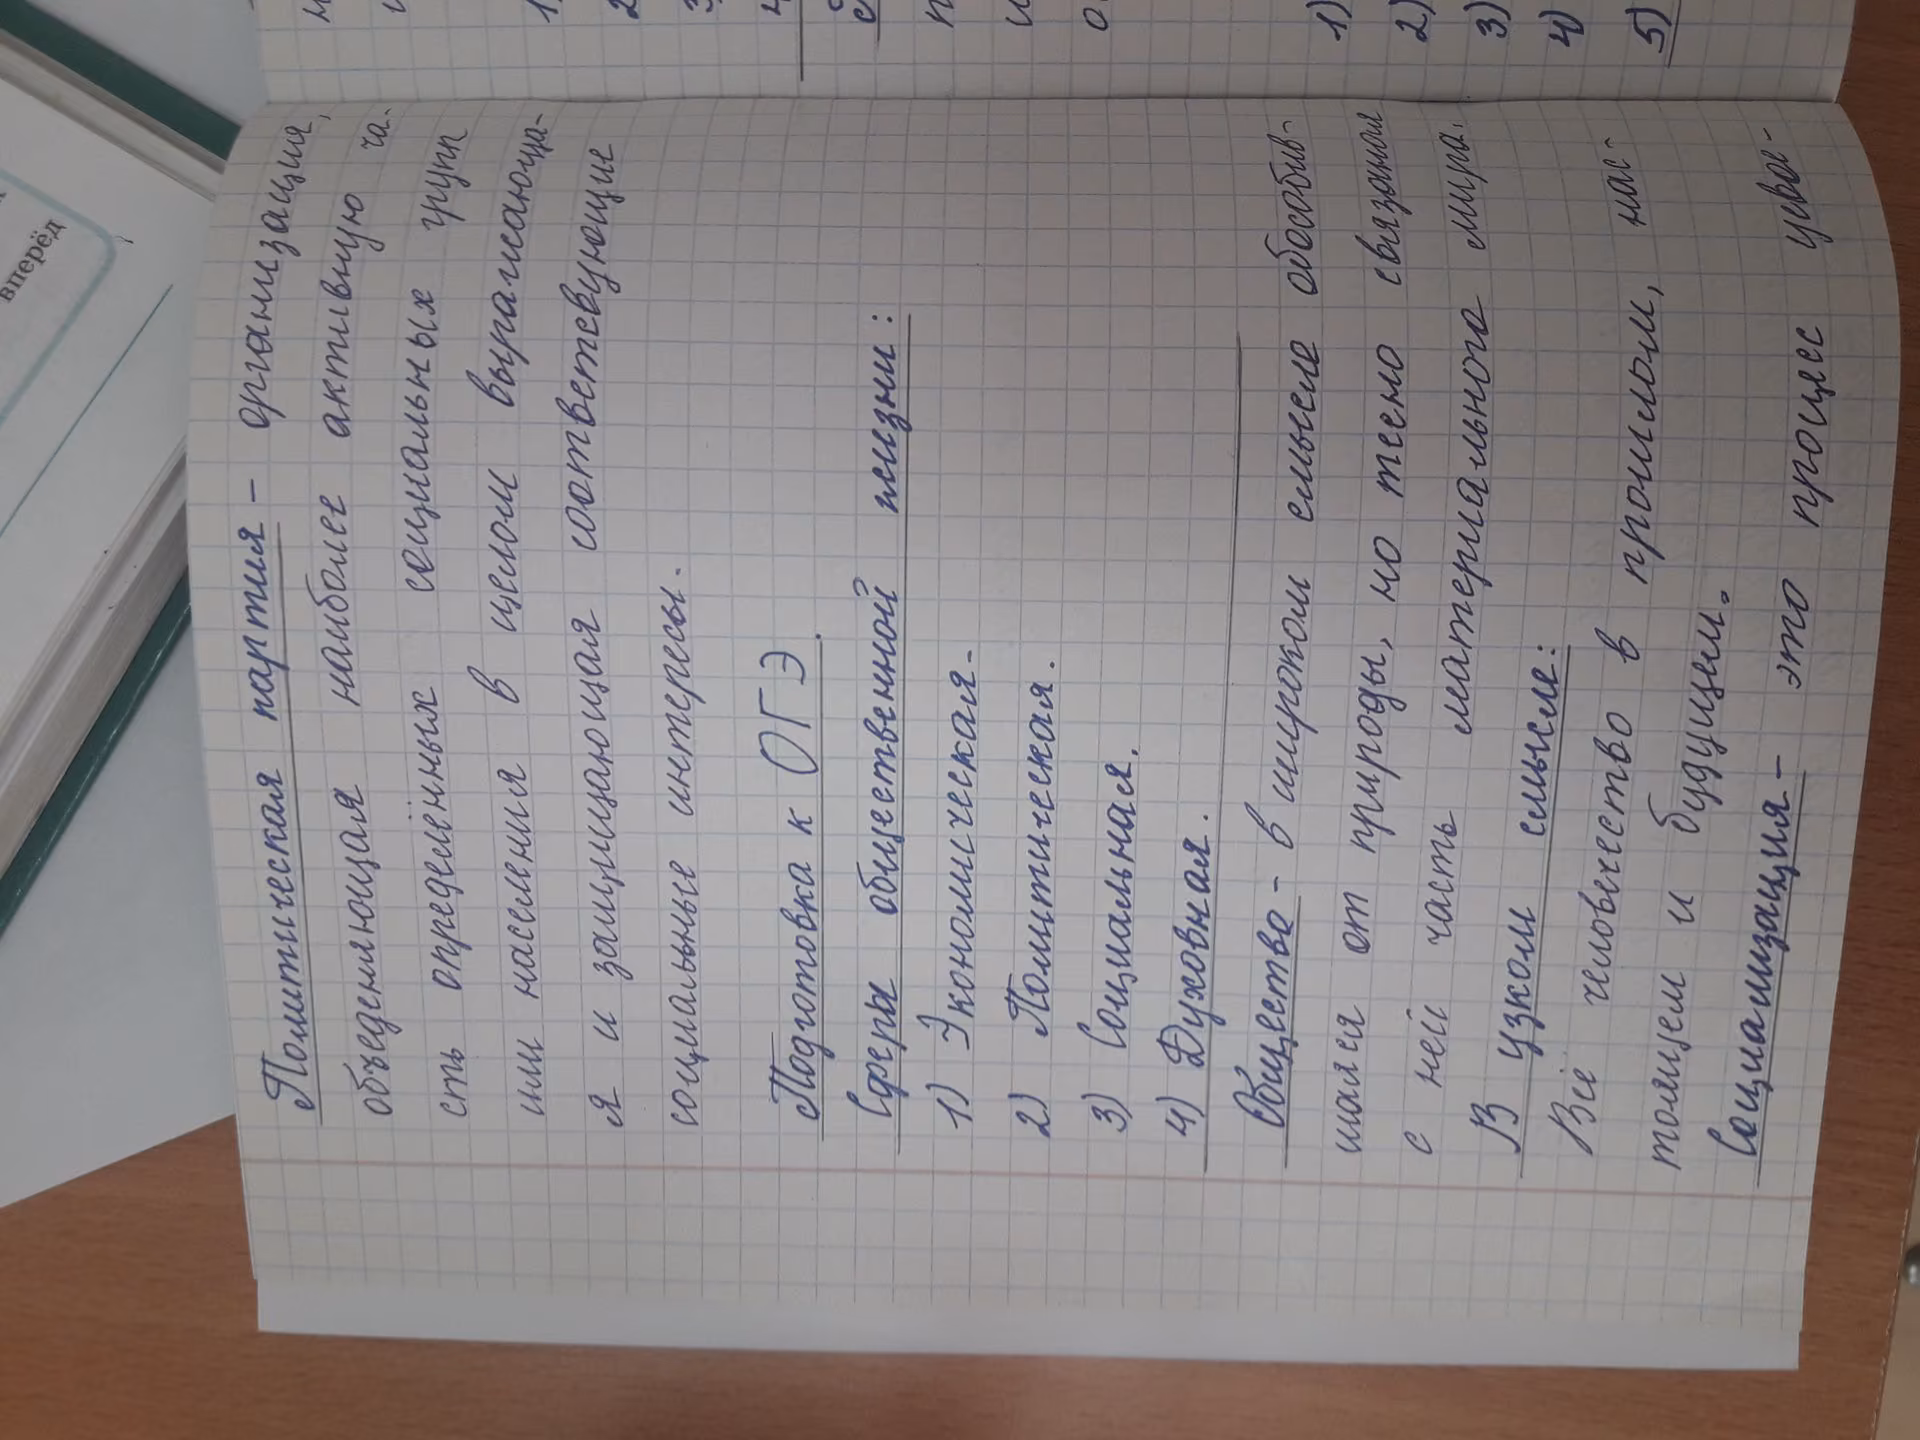 Политическая партия - организация,
объединяющая наиболее активную ча-
сть определённых социальных групп
или населения в целом выражающа-
я и защищающая соответсвующие
социальные интересы.
Подготовка к ОГЭ.
Сферы общественной жизни:
1) Экономическая.
2) Политическая.
3) Социальная.
4) Духовная.
Общество - в широком смысле обособив-
шаяся от природы, но тесно связаная
с ней часть материального мира.
В узком смысле:
Всё человечество в прошлом, нас-
тоящем и будущем.
Социализация - это процесс усвое-
1)
2)
3)
4)
5)
вперёд